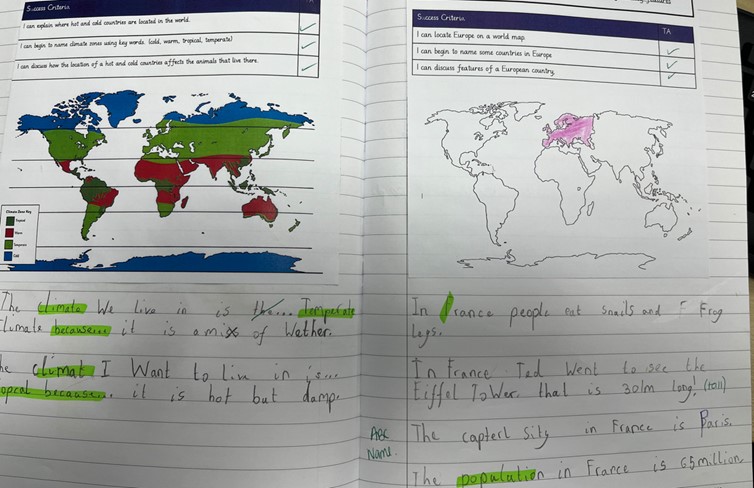 Success Criteria
I can explain where hot and cold countries are located in the world.
I can begin to name climate zones using key words. (cold, warm, tropical, temperate)
I can discuss how the location of a hot and cold countries affects the animals that live there.
Climate Zone Key
Tropical
Warm
Temperate
Cold
The climate We live in is the... Temperate
climate because... it is a mix of Wether.
he climat I Want to live in is...
opcal because... it is hot but damp.
Success Criteria
TA
I can locate Europe on a world map.
I can begin to name some countries in Europe
I can discuss features of a European country.
In France people eat snails and F Frog
legs.
In France Ted Went to see the
Eiffel Tower. that is 301m long! (tall)
ABC
Name.
The captert Sity in France is Paris.
The population in France is 65 million